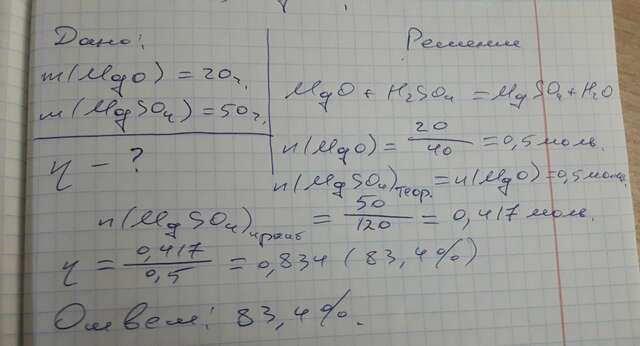 Дано:
m(MgO) = 20г.
m(MgSO4) = 50г.
η - ?
Решение
MgO + H2SO4 = MgSO4 + H2O
n(MgO) = 20/40 = 0,5 моль.
n(MgSO4)теор. = n(MgO) = 0,5 моль
n(MgSO4)практ = 50/120 = 0,417 моль.
η = 0,417/0,5 = 0,834 (83,4%)
Ответ: 83,4%.